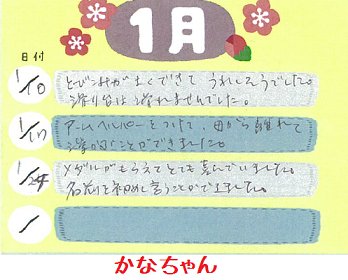 1月
日付
1/10
とびこみが上手くできて うれしそうでした。
滑り台は滑れませんでした。
1/17
アームヘルパーをつけて、母から離れて
進むことができました。
1/24
メダルがもらえてとても喜んでいました。
名前を初めて言うことができました。
/
かなちゃん